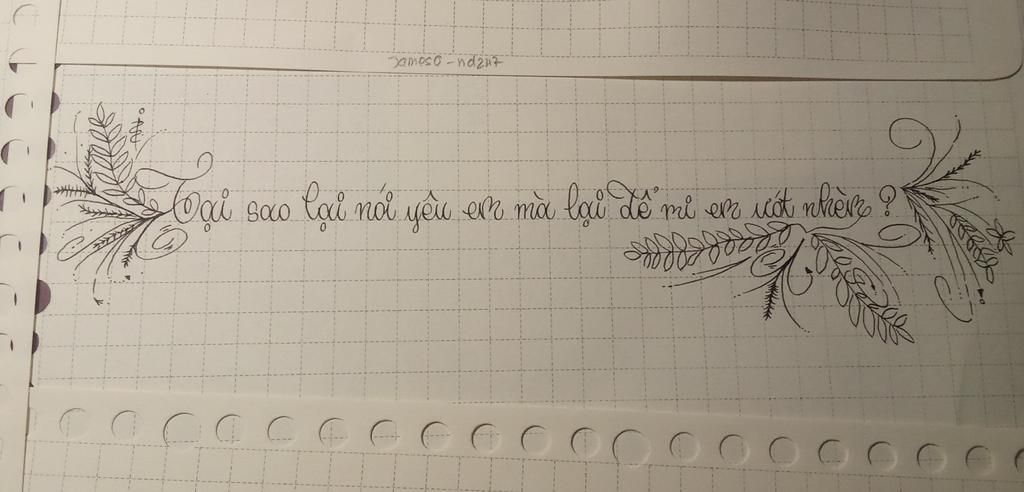 Tại sao lại nói yêu em mà lại để mi em ướt nhèm?